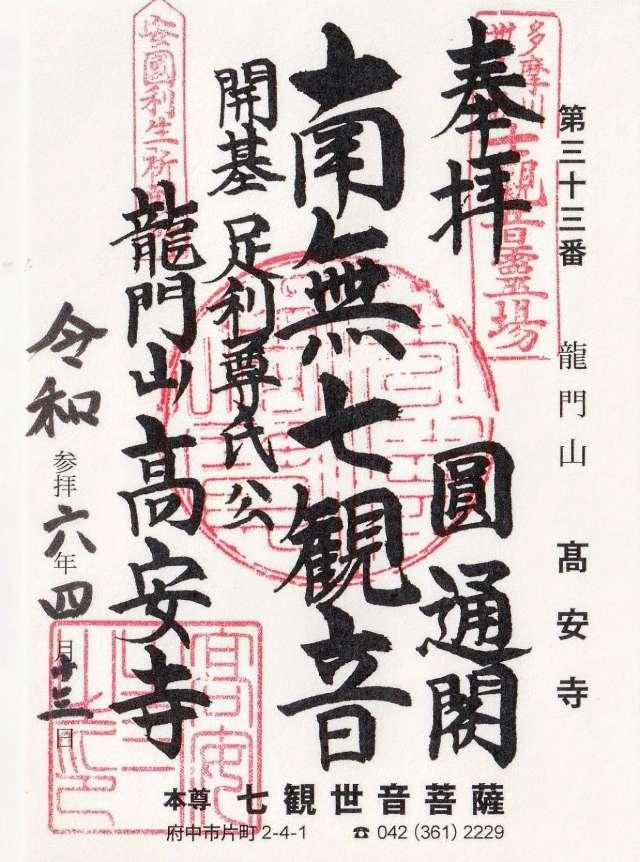 第三十三番 龍門山 髙安寺
奉拝 圓通閣
南無七観音
開基 足利尊氏公
龍門山 高安寺
令和 参拝 六年 四月 十三日
本尊 七観世音菩薩
府中市片町 2-4-1 ☎ 042 (361) 2229
多摩川
観音霊場
安國利生祈
高安